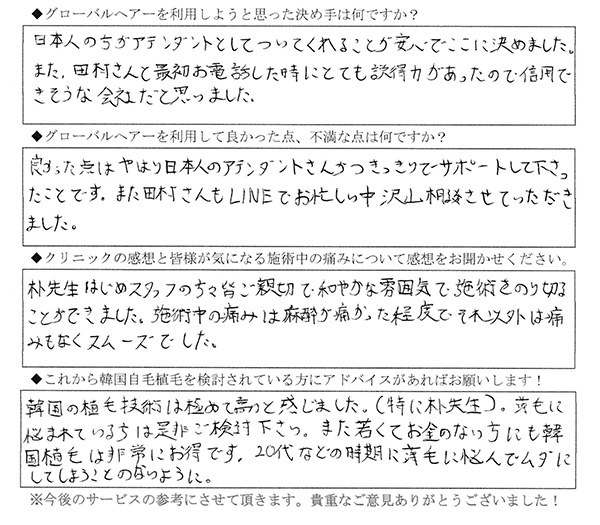 ◆グローバルヘアーを利用しようと思った決め手は何ですか？
日本人の方がアテンダントとしてついてくれることが安心でここに決めました。
また、田村さんと最初お電話した時にとても説得力があったので信用で
きそうな会社だと思いました。
◆グローバルヘアーを利用して良かった点、不満な点は何ですか？
良かった点はやはり日本人のアテンダントさんがつきっきりでサポートして下さっ
たことです。また田村さんもLINEでお忙しい中沢山相談させていただき
ました。
◆クリニックの感想と皆様が気になる施術中の痛みについて感想をお聞かせください。
朴先生はじめスタッフの方々皆ご親切で和やかな雰囲気で施術をのり切る
ことができました。施術中の痛みは麻酔が痛かった程度でそれ以外は痛
みもなくスムーズでした。
◆これから韓国自毛植毛を検討されている方にアドバイスがあればお願いします！
韓国の植毛技術は極めて高いと感じました。(特に朴先生)。薄毛に
悩まれている方は是非ご検討下さい。また若くてお金のない方にも韓
国植毛は非常にお得です。20代などの時期に薄毛に悩んでムダに
してしまうことのないように。
※今後のサービスの参考にさせて頂きます。貴重なご意見ありがとうございました！